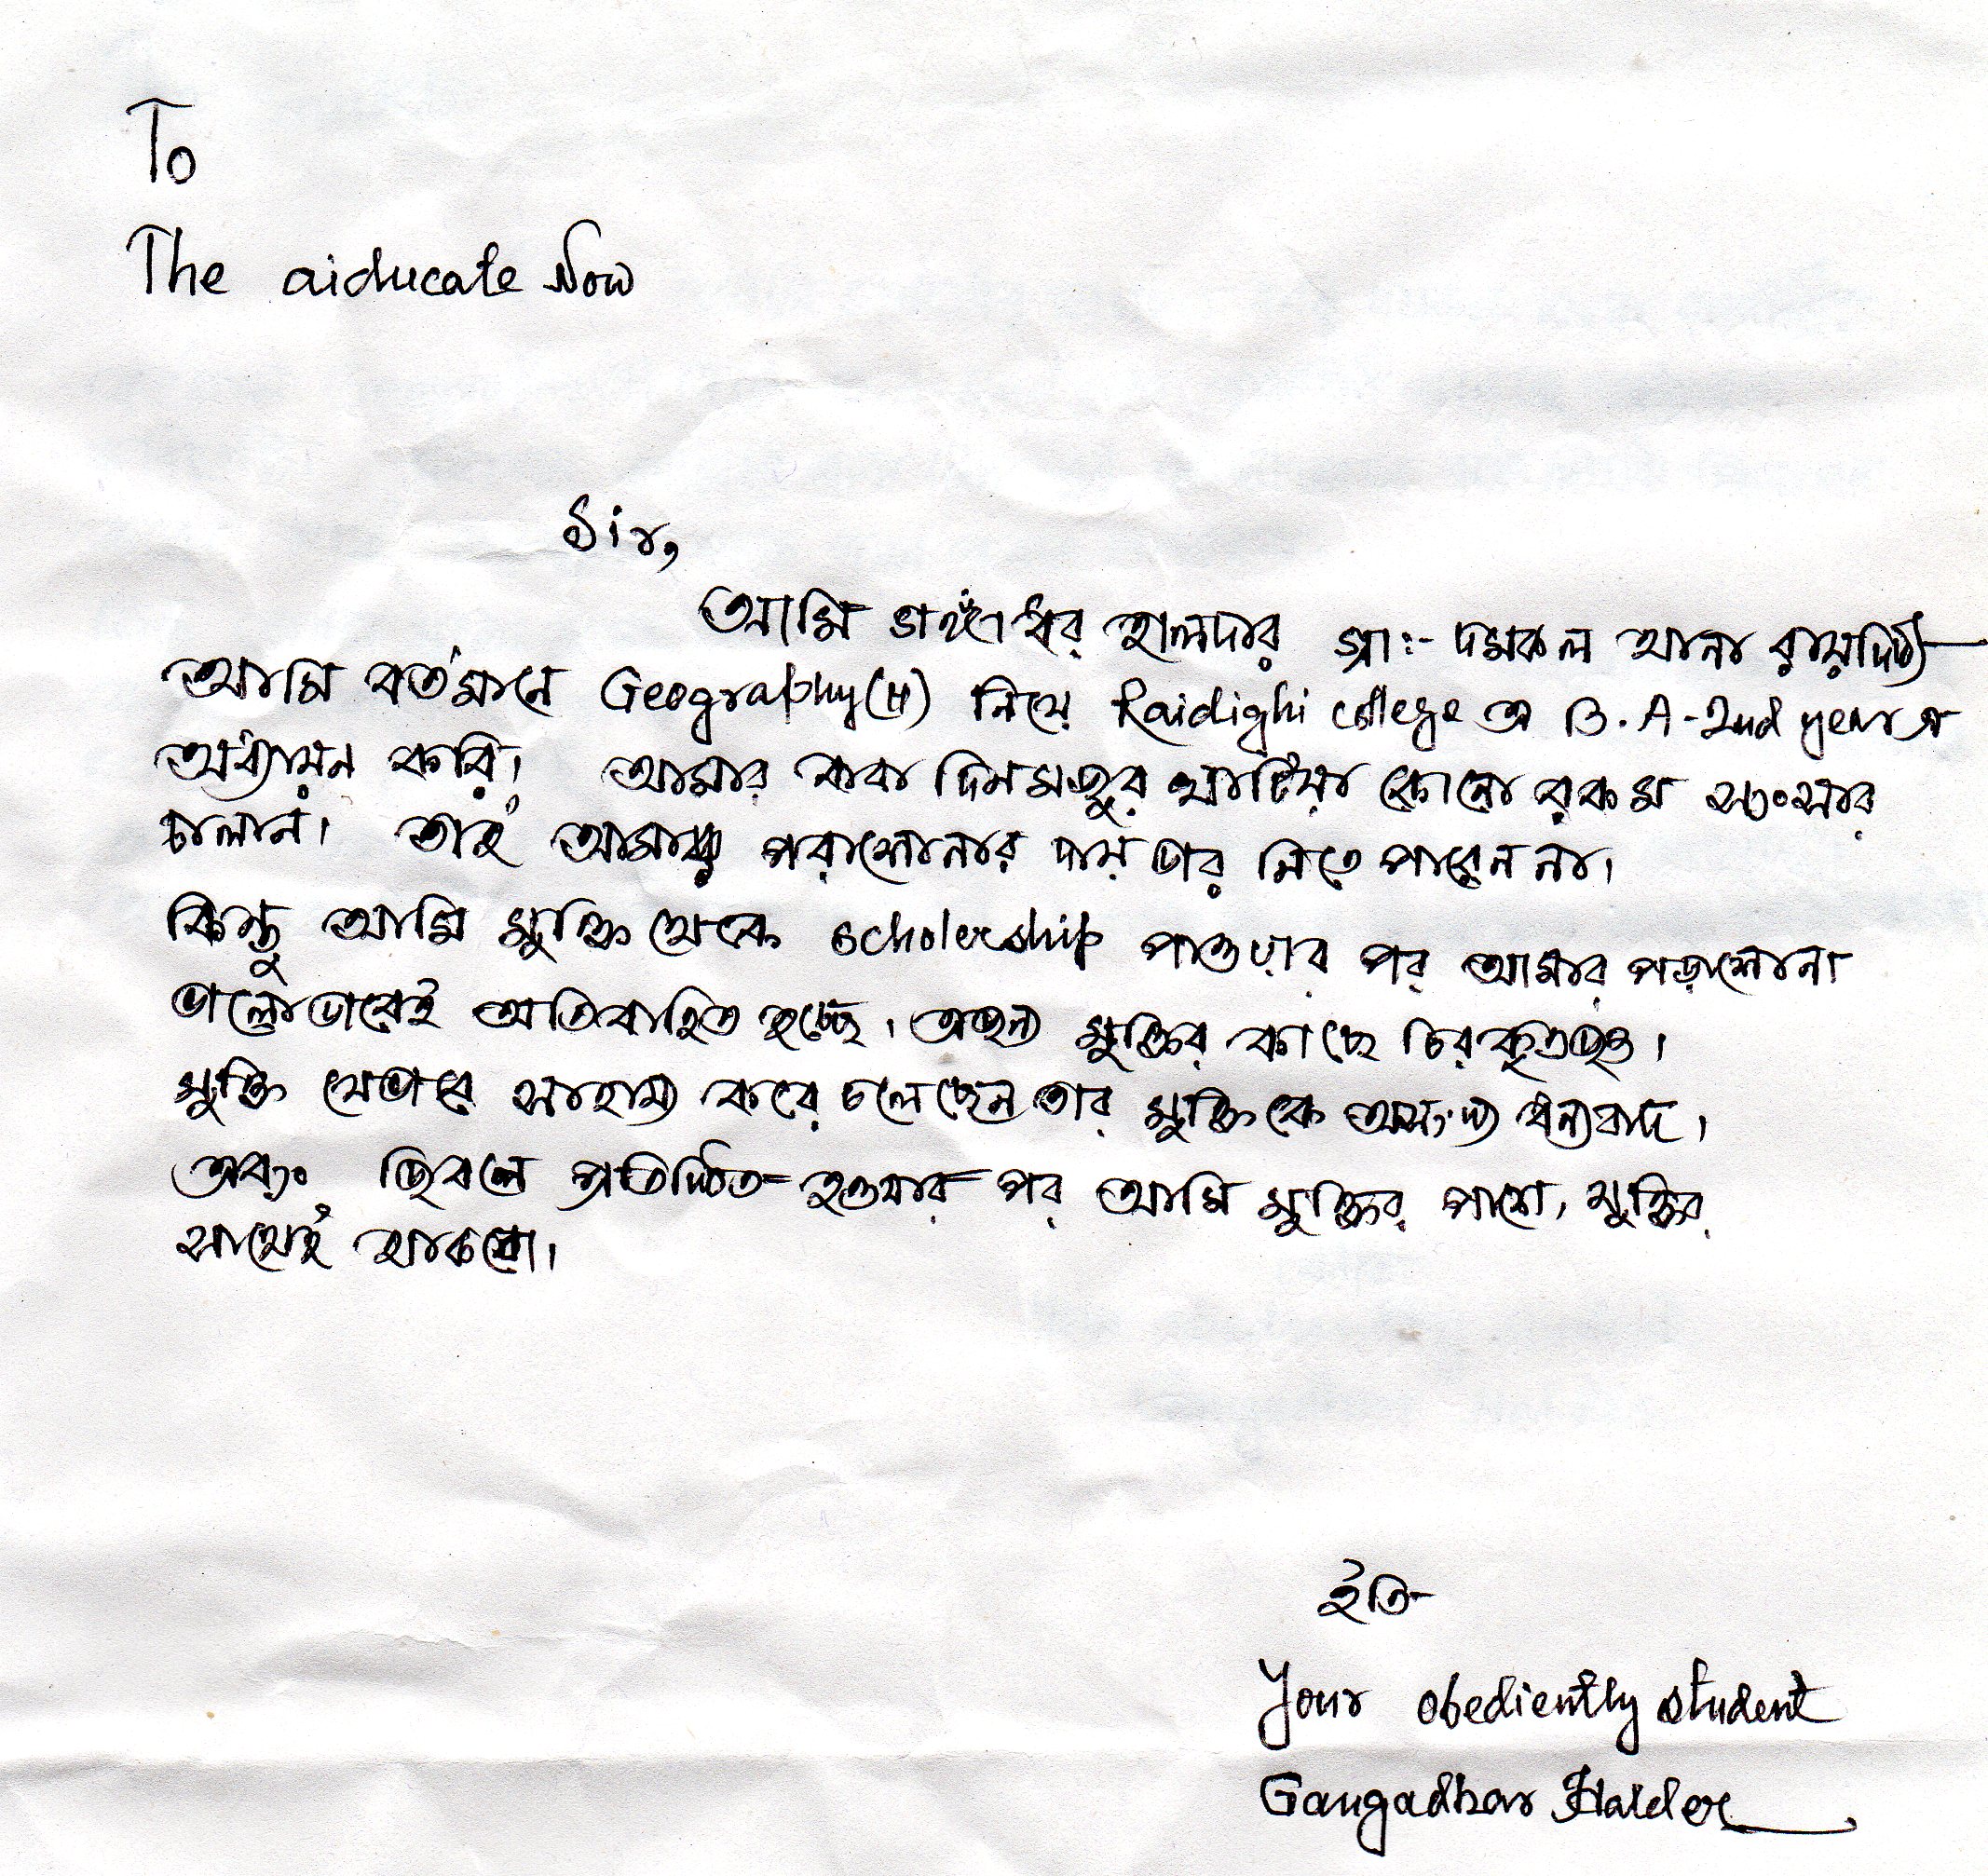 To
The aiducate Now
Sir,
আমি গঙ্গাধর হালদার গ্রাঃ- দমকল থানা রায়দিঘী
আমি বর্তমানে Geography(H) নিয়ে Raidighi college এ B.A-2nd year এ
অধ্যায়ন করি। আমার বাবা দিনমজুর খাটিয়া কোনো রকম সংসার
চালান। তাই আমার পরাশোনার দায় ভার নিতে পারেন না।
কিন্তু আমি মুক্তি থেকে scholership পাওয়ার পর আমার পড়াশোনা
ভালোভাবেই অতিবাহিত হচ্ছে। এজন্য মুক্তির কাছে চিরকৃতজ্ঞ।
মুক্তি যেভাবে সাহায্য করে চলেছেন তার মুক্তিকে অসংখ্য ধন্যবাদ।
এবং প্রতিষ্ঠিত হওয়ার পর আমি মুক্তির পাশে, মুক্তির
সাথেই থাকবো।
ইতি-
Your obediently student
Gangadhar Halder